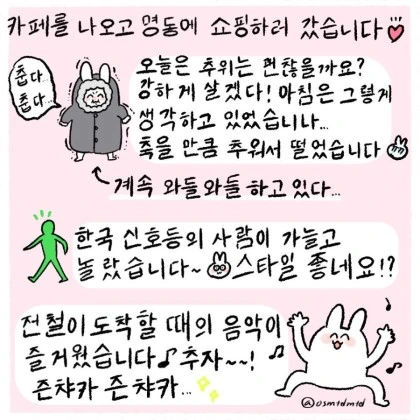 카페를 나오고 명동에 쇼핑하러 갔습니다
춥다..
춥다...
오늘은 추위는 괜찮을까요?
강하게 살겠다! 아침은 그렇게
생각하고 있었습니나...
죽을 만큼 추워서 떨었습니다
계속 와들와들 하고 있다...
한국 신호등의 사람이 가늘고
놀랐습니다~ 스타일 좋네요!?
전철이 도착할 때의 음악이
즐거웠습니다♪ 추자~~!
즌챠카 즌챠카...
@osmtdmtd